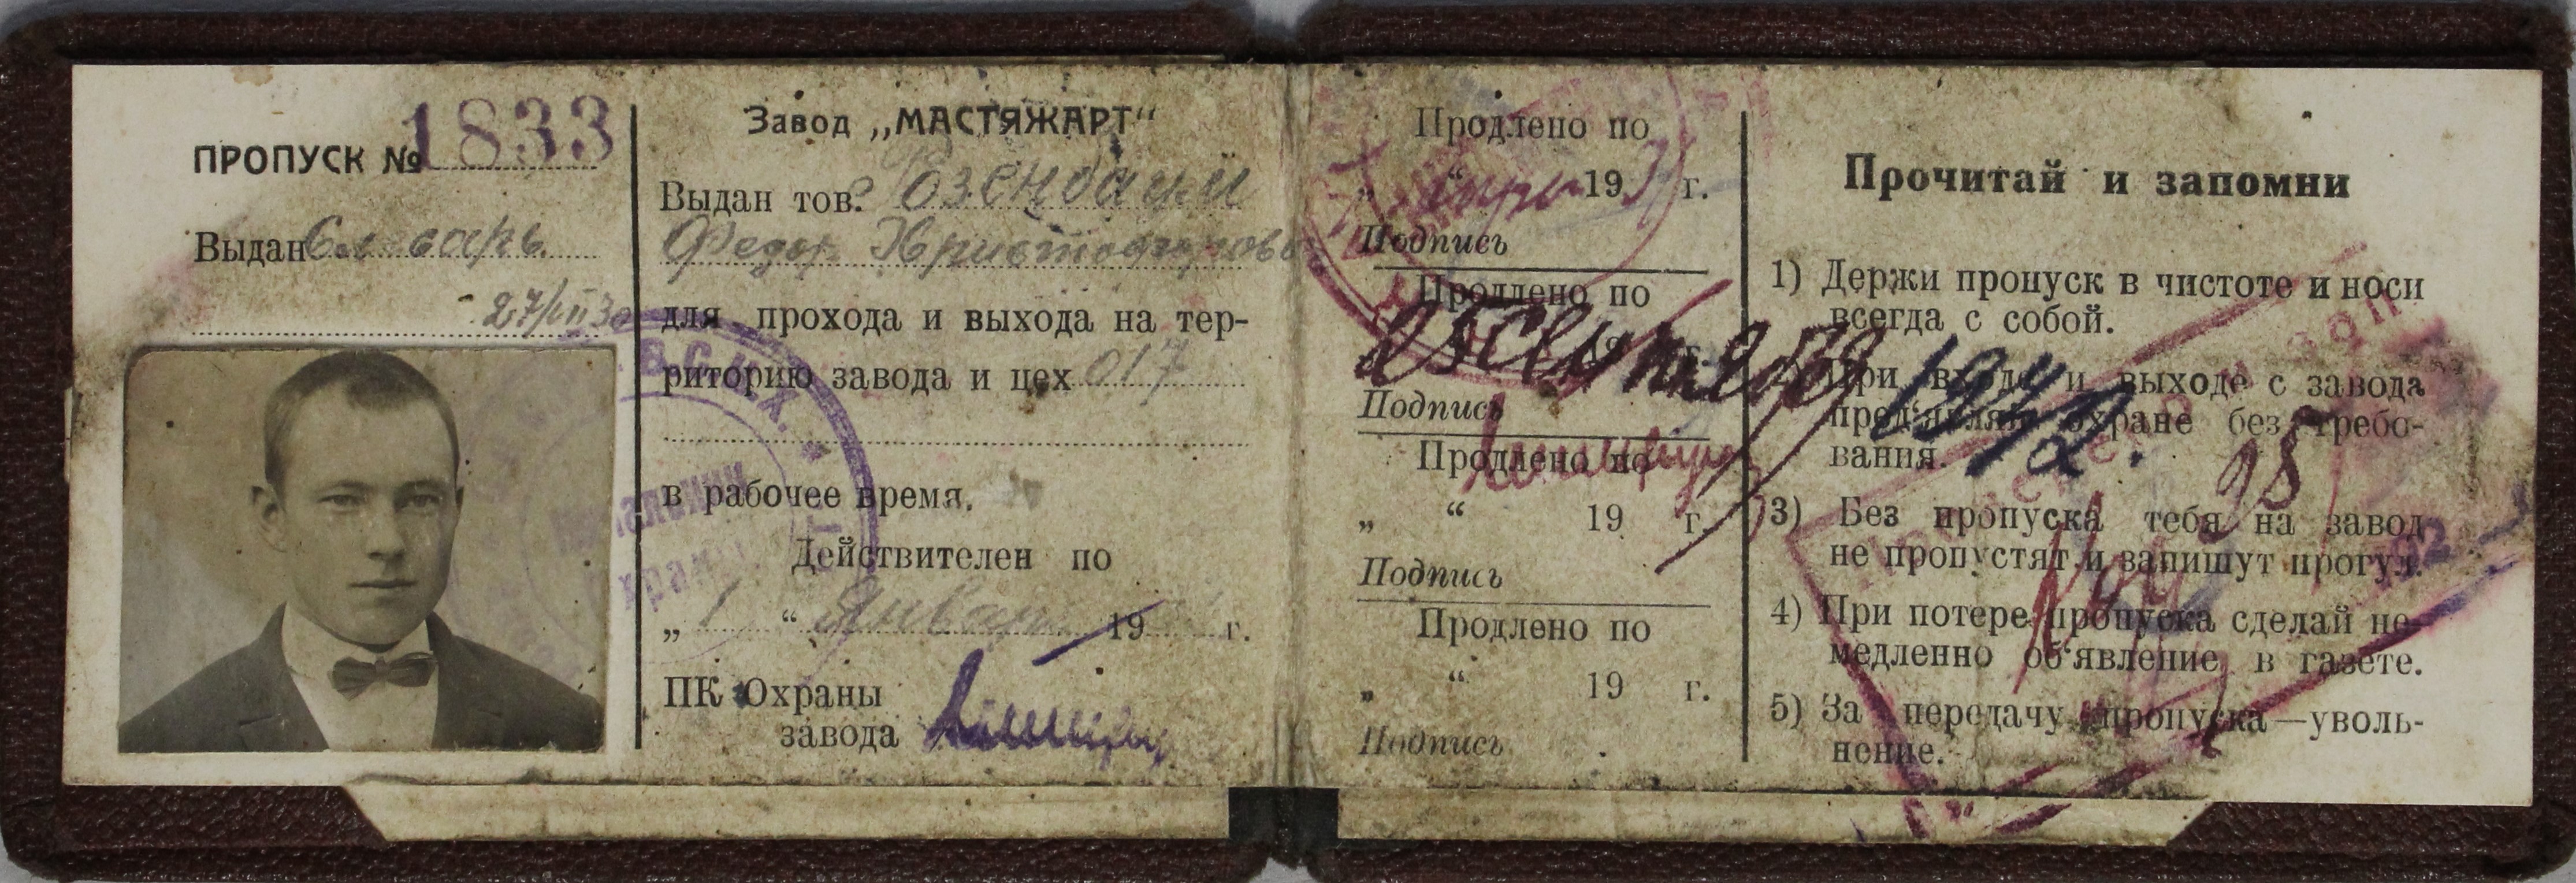 ПРОПУСК № 1833
Выдан Слесарь
27/III 30
Завод „МАСТЯЖАРТ“
Выдан тов. Розенбаум
Федор Христофоров
для прохода и выхода на тер-
риторию завода и цех 017
в рабочее время.
Действителен по
„ 1 “ Января 19 г.
ПК Охраны
завода
Продлено по
„ “ 193 г.
Подпись
Продлено по
19 г.
Подпись
Продлено по
„ “ 19 г.
Подпись
Продлено по
„ “ 19 г.
Подпись
Прочитай и запомни
1) Держи пропуск в чистоте и носи
всегда с собой.
2) При входе и выходе с завода
пред'являй охране без требо-
вания.
3) Без пропуска тебя на завод
не пропустят и запишут прогул.
4) При потере пропуска сделай не-
медленно об'явление в газете.
5) За передачу пропуска—уволь-
нение.
В.С.Н.Х.
Начальник
Охраны